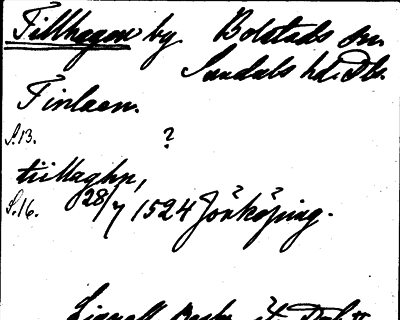 Tillhagen by. Bolstads sn.
Sundals hd. Dls.
Finlaen.
S.13. ?
tillaghn,
S.16. 28/7 1524 Jönköping.